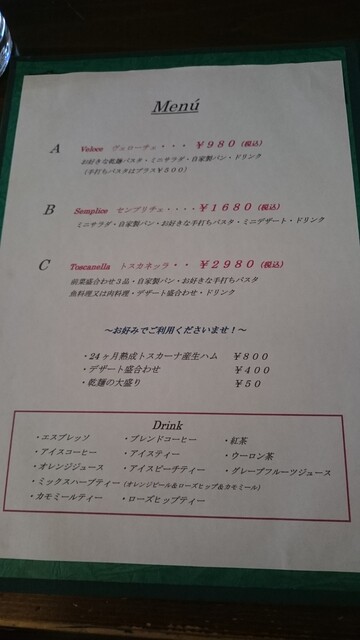 Menú
A Veloce ヴェローチェ・・・ ￥９８０（税込）
お好きな乾麺パスタ・ミニサラダ・自家製パン・ドリンク
（手打ちパスタはプラス￥５００）
B Semplice センプリチェ・・・・ ￥１６８０（税込）
ミニサラダ・自家製パン・お好きな手打ちパスタ・ミニデザート・ドリンク
C Toscanella トスカネッラ・・ ￥２９８０（税込）
前菜盛合わせ３品・自家製パン・お好きな手打ちパスタ
魚料理又は肉料理・デザート盛合わせ・ドリンク
～お好みでご利用くださいませ！～
・24ヶ月熟成トスカーナ産生ハム ￥８００
・デザート盛合わせ ￥４００
・乾麺の大盛り ￥５０
Drink
・エスプレッソ ・ブレンドコーヒー ・紅茶
・アイスコーヒー ・アイスティー ・ウーロン茶
・オレンジジュース ・アイスピーチティー ・グレープフルーツジュース
・ミックスハーブティー（オレンジピール＆ローズヒップ＆カモミール）
・カモミールティー ・ローズヒップティー